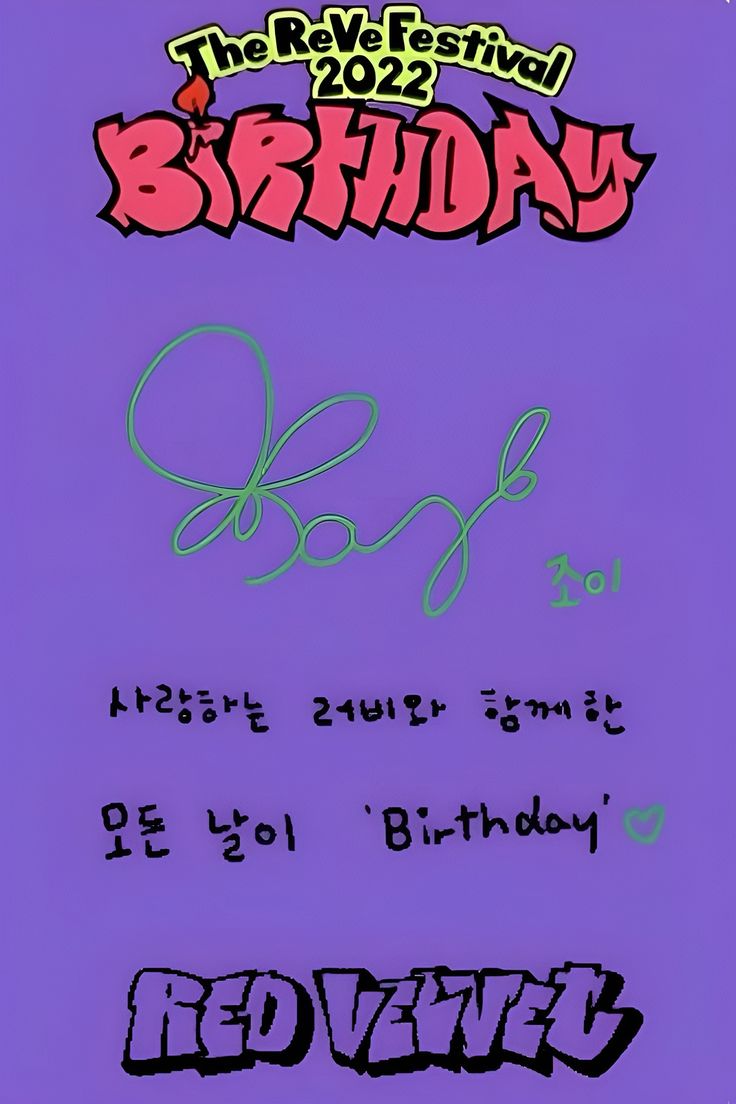 The ReVe Festival
2022
BiRTHDAY
Joy
조이
사랑하는 러비와 함께한
모든 날이 'Birthday' ♡
RED VELVET